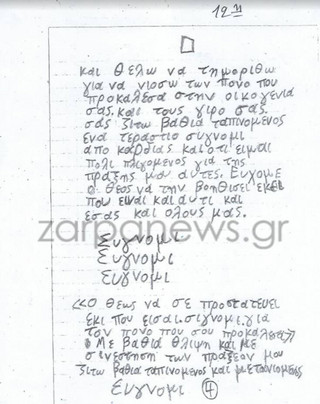 12 11
και θελω να τημοριθω
για να νιοσω των πονο που
προκαλεσα στην οικογενια
σας. και τους γιρο σας.
σας ζιτω βαθια ταπινομενος
ενα τεραστιο συγνομι
απο καρδιας και οτι ειμαι
πολι πλιγομενος για της
πραξης μου αυτες. Ευχομε
ο θεος να την βοηθισει εκει
που ειναι και αυτι και
εσας και ολους μας.
zarpanews.gr
Συγνομι
Συγνομι
Συγνομι
<<Ο θεως να σε προστατευει
εκι που εισαι. σιγνομι για
τον πονο που σου προκαλεσα>>
Με βαθια θλιψη και με
σινεστηση των πραξεον μου
ζιτω βαθια ταπινομενος και μετανιομενος
Συγνομι 4